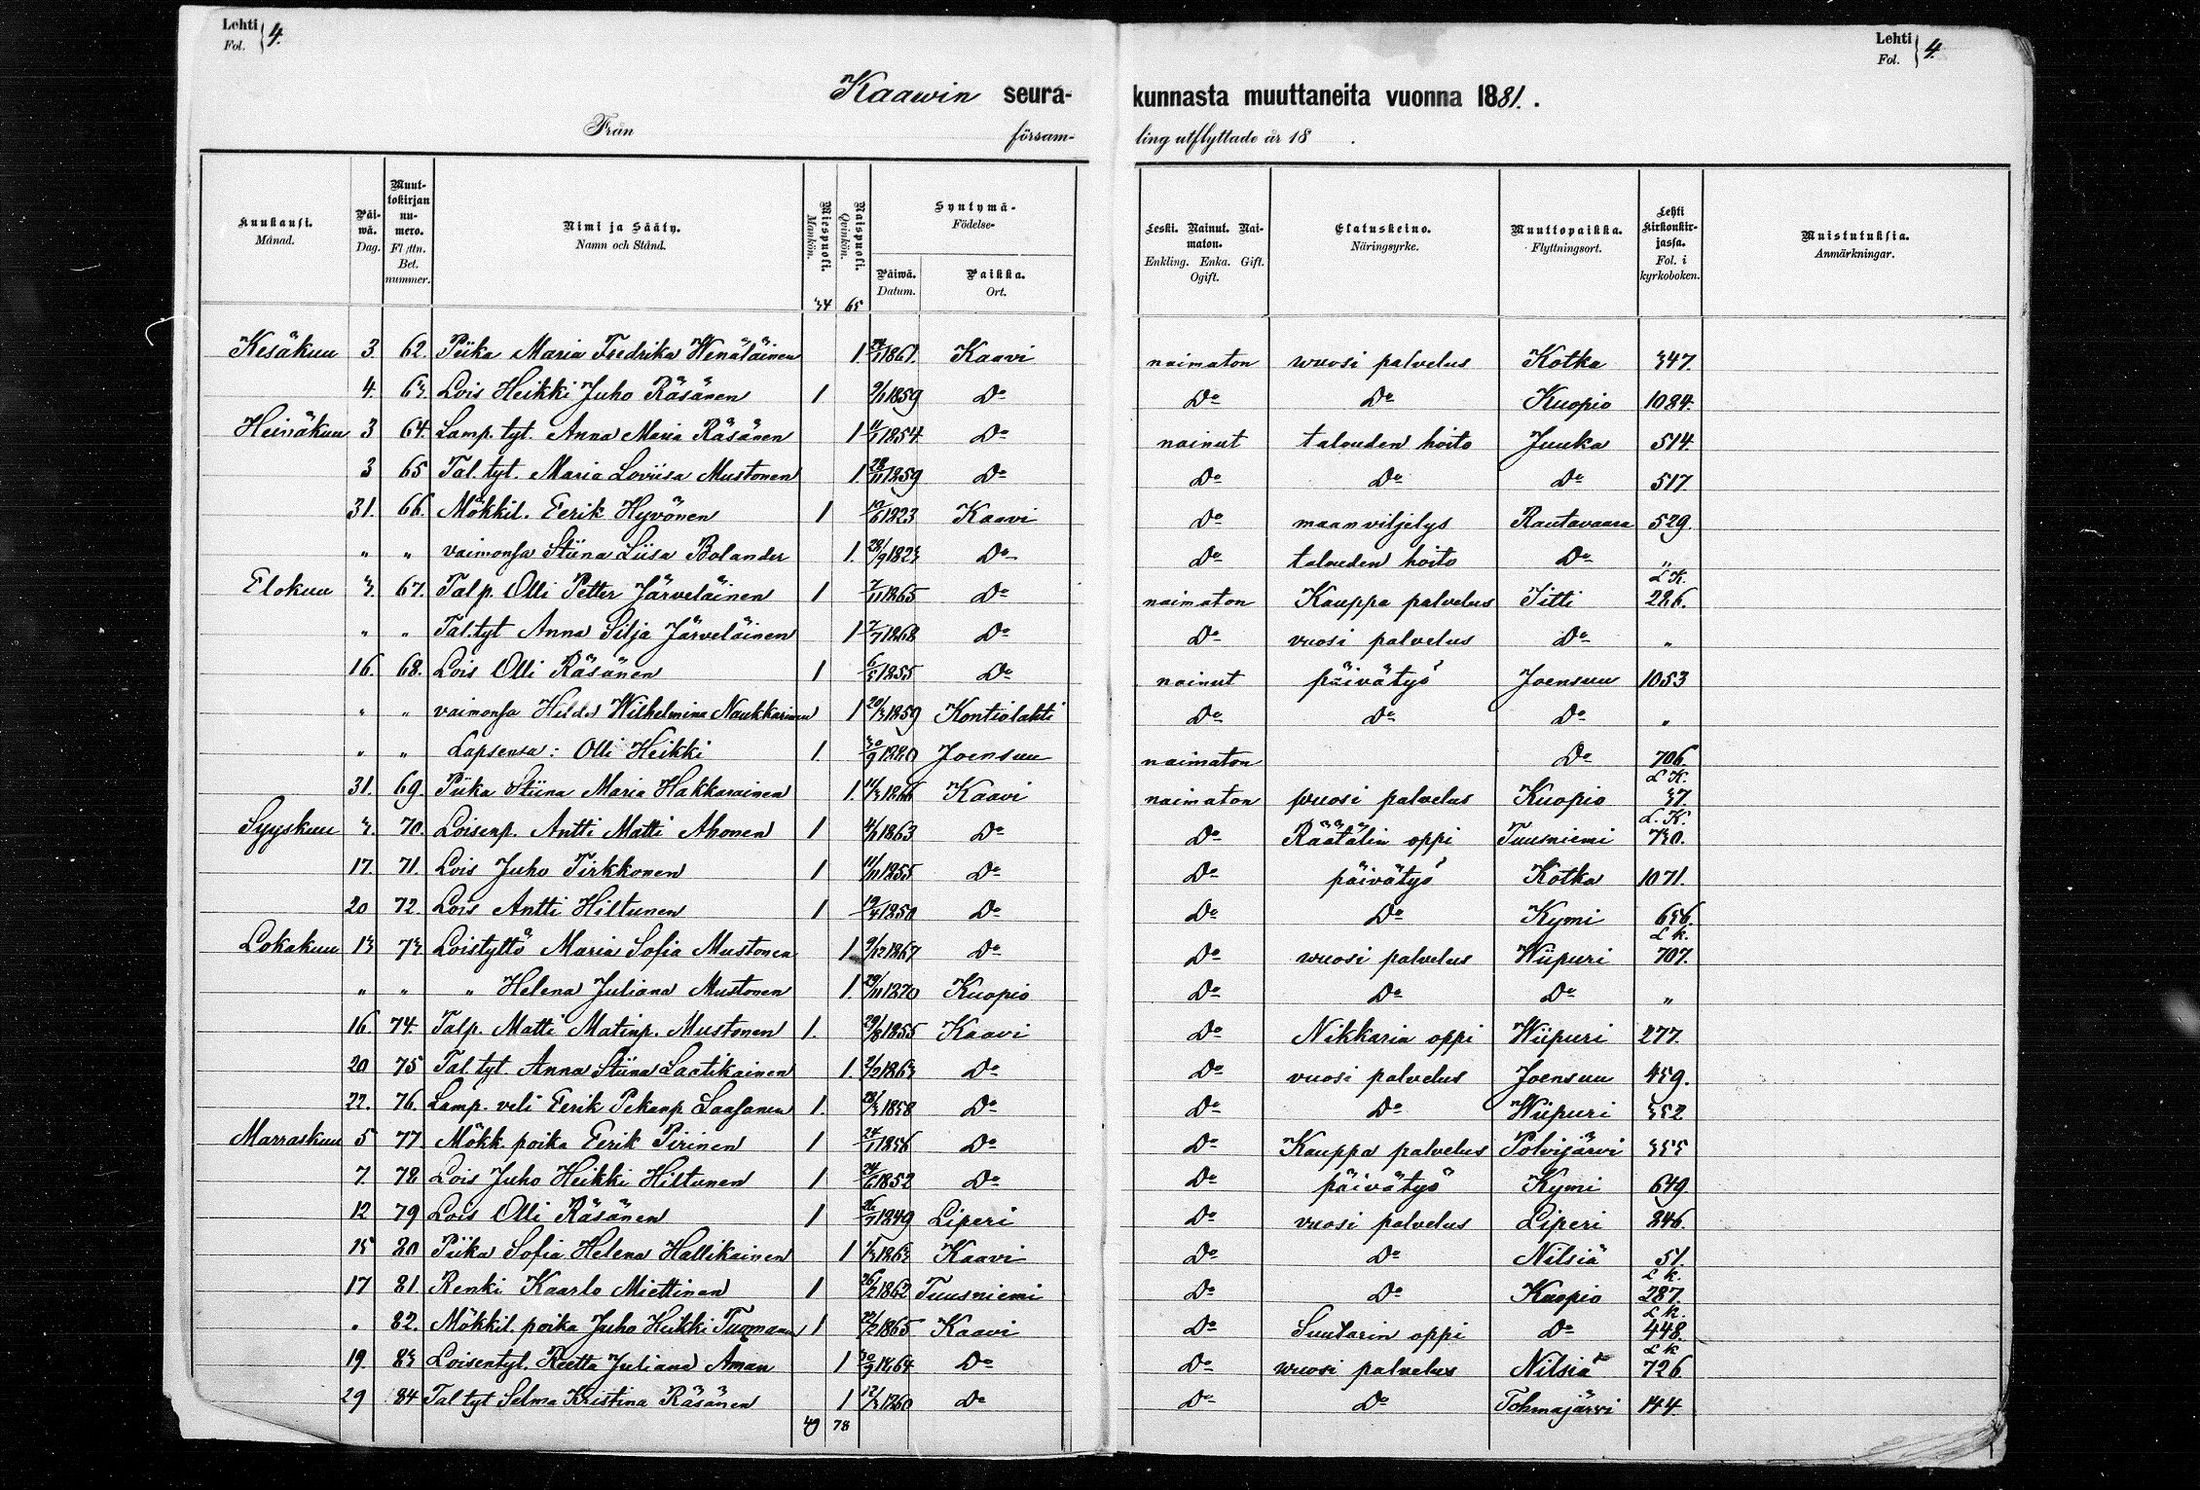 Lehti Fol. 4.
Lehti Fol. 4.
Kaawin seura- kunnasta muuttaneita vuonna 1881.
Från församling utflyttade år 18 .
Kuukausi. Månad. Päiwä. Dag. Muuttokirjan numero. Flyttn. Bet. nummer. Nimi ja Sääty. Namn och Stånd. Miespuoli. Mankön. Naispuoli. Qvinkön. Syntymä- Födelse- Päiwä. Datum. Paikka. Ort. Leski. Nainut. Naimaton. Enkling. Enka. Gift. Ogift. Elatuskeino. Näringsyrke. Muuttopaikka. Flyttningsort. Lehti Kirkonkirjassa. Fol. i kyrkoboken. Muistutuksia. Anmärkningar.
34 65
Kesäkuu 3. 62. Piika Maria Fredrika Wenäläinen 1. 1861. Kaavi naimaton wuosi palvelus Kotka 347.
4. 63 Lois Heikki Juho Räsänen 1 9/1 1859 Do Do Do Kuopio 1084.
Heinäkuu 3 64. Lamp. tyt. Anna Maria Räsänen 1 1854 Do nainut talouden hoito Juuka 514.
3 65 Tal. tyt. Maria Loviisa Mustonen 1. 28/11 1859 Do Do Do Do 517.
31. 66. Mökkil. Eerik Hyvönen 1 1823 Kaavi Do maanviljelys Rautavaara 529.
" " vaimonsa Stiina Liisa Bolander 1. 28/9 1823 Do Do talouden hoito Do "
Elokuu 3. 67. Talp. Olli Petter Järveläinen 1 7/11 1865 Do naimaton Kauppa palvelus Iitti L.K. 286.
" " Tal.tyt Anna Silja Järveläinen 1 7/7 1868 Do Do vuosi palvelus Do "
16. 68. Lois Olli Räsänen 1 6/5 1855 Do nainut päivätyö Joensuu 1053
" " vaimonsa Hilda Wilhelmina Naukkarinen 1 20/3 1859 Kontiolahti Do Do Do "
" " Lapsensa: Olli Heikki 1. 30/9 1880 Joensuu naimaton Do 706.
31. 69. Piika Stiina Maria Hakkarainen 1. 11/3 1866 Kaavi naimaton wuosi palvelus Kuopio L.K. 37.
Syyskuu 3. 70. Loisenp. Antti Matti Ahonen 1 1863 Do Do Räätälin oppi Tuusniemi L.K. 730.
17. 71. Lois Juho Tirkkonen 1 11/11 1855 Do Do päivätyö Kotka 1071.
20 72. Lois Antti Hiltunen 1 1850 Do Do Do Kymi 656.
Lokakuu 13 73 Loistyttö Maria Sofia Mustonen 1 9/12 1867 Do Do wuosi palvelus Wiipuri L.k. 707.
" " " Helena Juliana Mustonen 1. 29/11 1870 Kuopio Do Do Do "
16. 74. Talp. Matti Matinp. Mustonen 1. 29/8 1855 Kaavi Do Nikkarin oppi Wiipuri 277.
20 75 Tal. tyt. Anna Stiina Laatikainen 1. 2/2 1863 Do Do vuosi palvelus Joensuu 459.
22. 76. Lamp. veli Eerik Pekanp. Laasanen 1. 28/3 1858 Do Do Do Wiipuri 352
Marraskuu 5 77. Mökk. poika Eerik Pirinen 1 24/1 1856 Do Do Kauppa palvelus Polvijärvi 355
7. 78 Lois Juho Heikki Hiltunen 1 24/6 1852 Do Do päivätyö Kymi 649.
12 79 Lois Olli Räsänen 1 1849 Liperi Do vuosi palvelus Liperi 846.
15 80 Piika Sofia Helena Hallikainen 1 1/3 1863 Kaavi Do Do Nilsiä 51.
17 81. Renki Kaarlo Miettinen 1 26/2 1862 Tuusniemi Do Do Kuopio L.k. 287.
" 82. Mökkil. poika Juho Heikki Tuomainen 1 22/2 1865 Kaavi Do Suutarin oppi Do L.k. 448.
19 83 Loisentyt. Reetta Juliana Aman 1 30/9 1864 Do Do wuosi palvelus Nilsiä L.k. 726
29 84 Tal tyt Selma Kristina Räsänen 1 12/3 1860 Do Do Do Tohmajärvi 144.
49 78